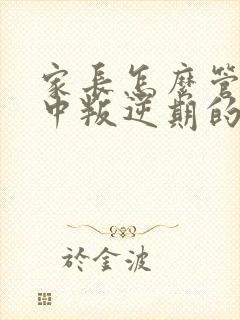 家長怎麼管
中叛逆期的
於金波